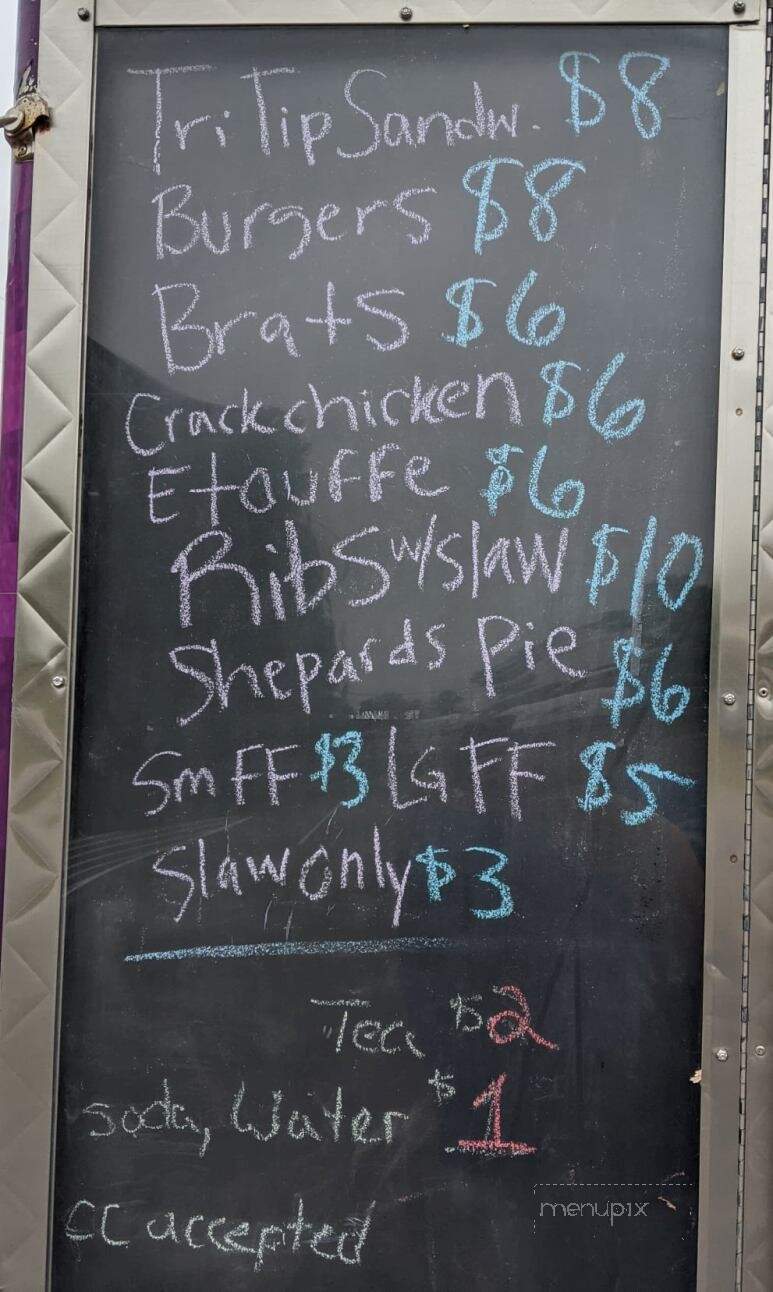 Tri Tip Sandw. $8
Burgers $8
Brats $6
Crack chicken $6
Etouffe $6
Ribs w/slaw $10
Shepards Pie $6
Sm FF $3 LG FF $5
Slaw only $3
Tea $2
soda, Water $1
CC accepted
menupix